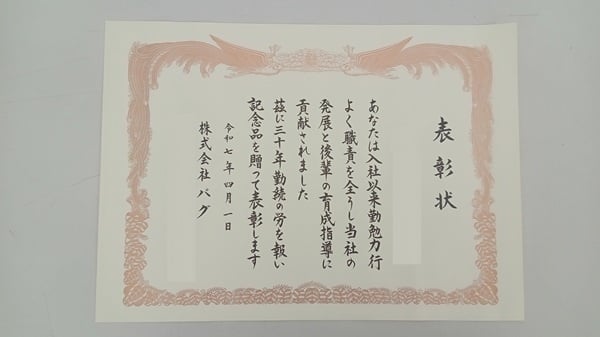 表彰状
あなたは入社以来勤勉力行
よく職責を全うし当社の
発展と後輩の育成指導に
貢献されました
茲に三十年勤続の労を報い
記念品を贈って表彰します
令和七年四月一日
株式会社バグ